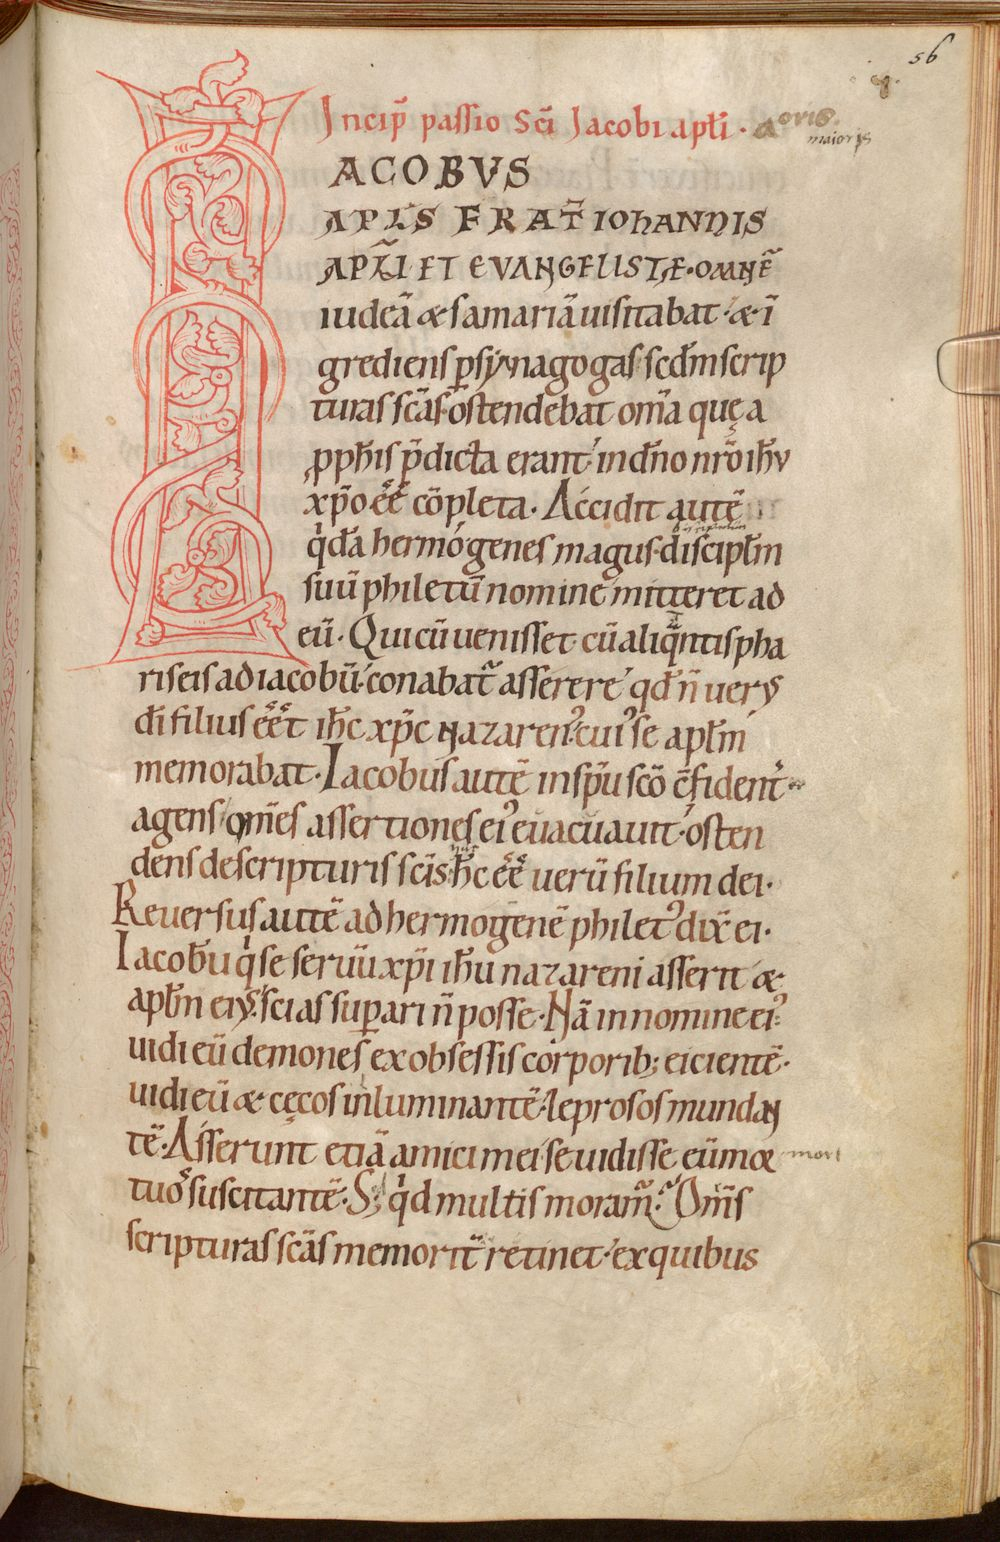 56
Incip̃ passio Sc̃i Jacobi apłi · maioris
IACOBVS
APLS FRAT̃ IOHANNIS
APŁI ET EVANGELISTÆ · OMNẼ
iudeã & samariã uisitabat · & ĩ
grediens p̱ synagogas sc̃dm scrip
turas sc̃as ostendebat om̃a quę a
ꝓph̃is p̃dicta erant in dñо nr̃o ih̃u
xp̃o ee͂ cõpleta. Accidit autẽ
q̇dã hermógenes magus discipłm
suũ philetũ nomine mitteret ad
eũ. Qui cũ uenisset cũ aliq̃ntis pha
riseis ad iacobũ conabat᷑ asserere qđ ñ uerꝰ
dĩ filius ee͂t ih̃c xp̃c nazarenꝰ cuiꝰ se apłm
memorabat. Iacobus autẽ in sp̃u sc̃o c̃fident᷑
agens om̃es assertiones eiꝰ euacuauit · osten
dens de scripturis sc̃is h̃c ee͂ uerũ filium dei.
Reuersus autẽ ad hermogenẽ philetꝰ dix̃ ei.
Iacobũ q̇ se seruũ xp̃i ih̃u nazareni asserit &
apłm eiꝰ scias sup̱ari ñ posse. Nã in nomine eiꝰ
uidi eũ demones ex obsessis corporib; eicientẽ.
uidi eũ & cęcos inluminantẽ leprosos mundan
tẽ. Asserunt etiã amici mei se uidisse eũ mor mort
tuos suscitantẽ. S; q̇d multis moram᷑. Om̃s
scripturas sc̃as memorit̃ retinet ex quibus